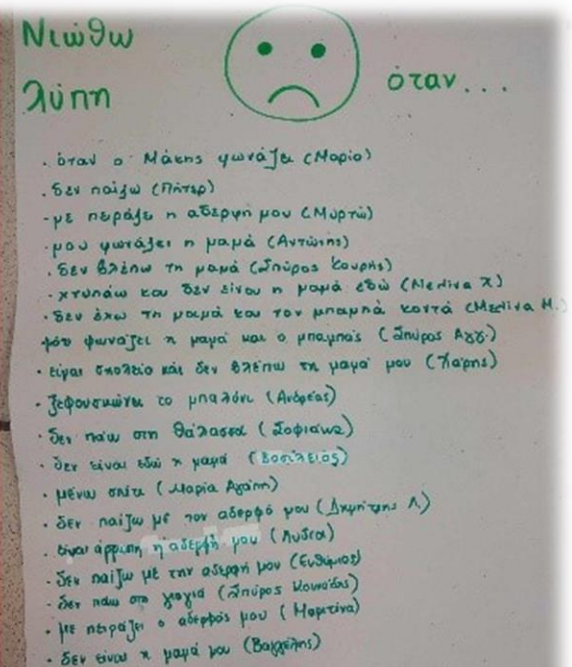 Νιώθω
λύπη
όταν...
· όταν ο Μάκης φωνάζει (Μαρία)
· δεν παίζω (Πήτερ)
- με πειράζει η αδερφή μου (Μυρτώ)
- μου φωνάζει η μαμά (Αντώνης)
· δεν βλέπω τη μαμά (Σπύρος Κουρής)
· χτυπάω και δεν είναι η μαμά εδώ (Μελίνα Χ)
· δεν έχω τη μαμά και τον μπαμπά κοντά (Μελίνα Μ.)
μου φωνάζει η μαμά και ο μπαμπάς (Σπύρος Αγγ.)
· είμαι σχολείο και δεν βλέπω τη μαμά μου (Χάρης)
· ξεφουσκώνει το μπαλόνι (Ανδρέας)
· δεν πάω στη θάλασσα (Σοφιάννα)
· δεν είναι εδώ η μαμά (Βασίλειος)
· μένω σπίτι (Μαρία Αγάπη)
· δεν παίζω με τον αδερφό μου (Δημήτρης Λ.)
· είναι άρρωστη η αδερφή μου (Λυδία)
· δεν παίζω με την αδερφή μου (Ευθύμιος)
- δεν πάω στη γιαγιά (Σπύρος)
· με πειράζει ο αδερφός μου (Μαρτίνα)
· δεν είναι η μαμά μου (Βαγγέλης)